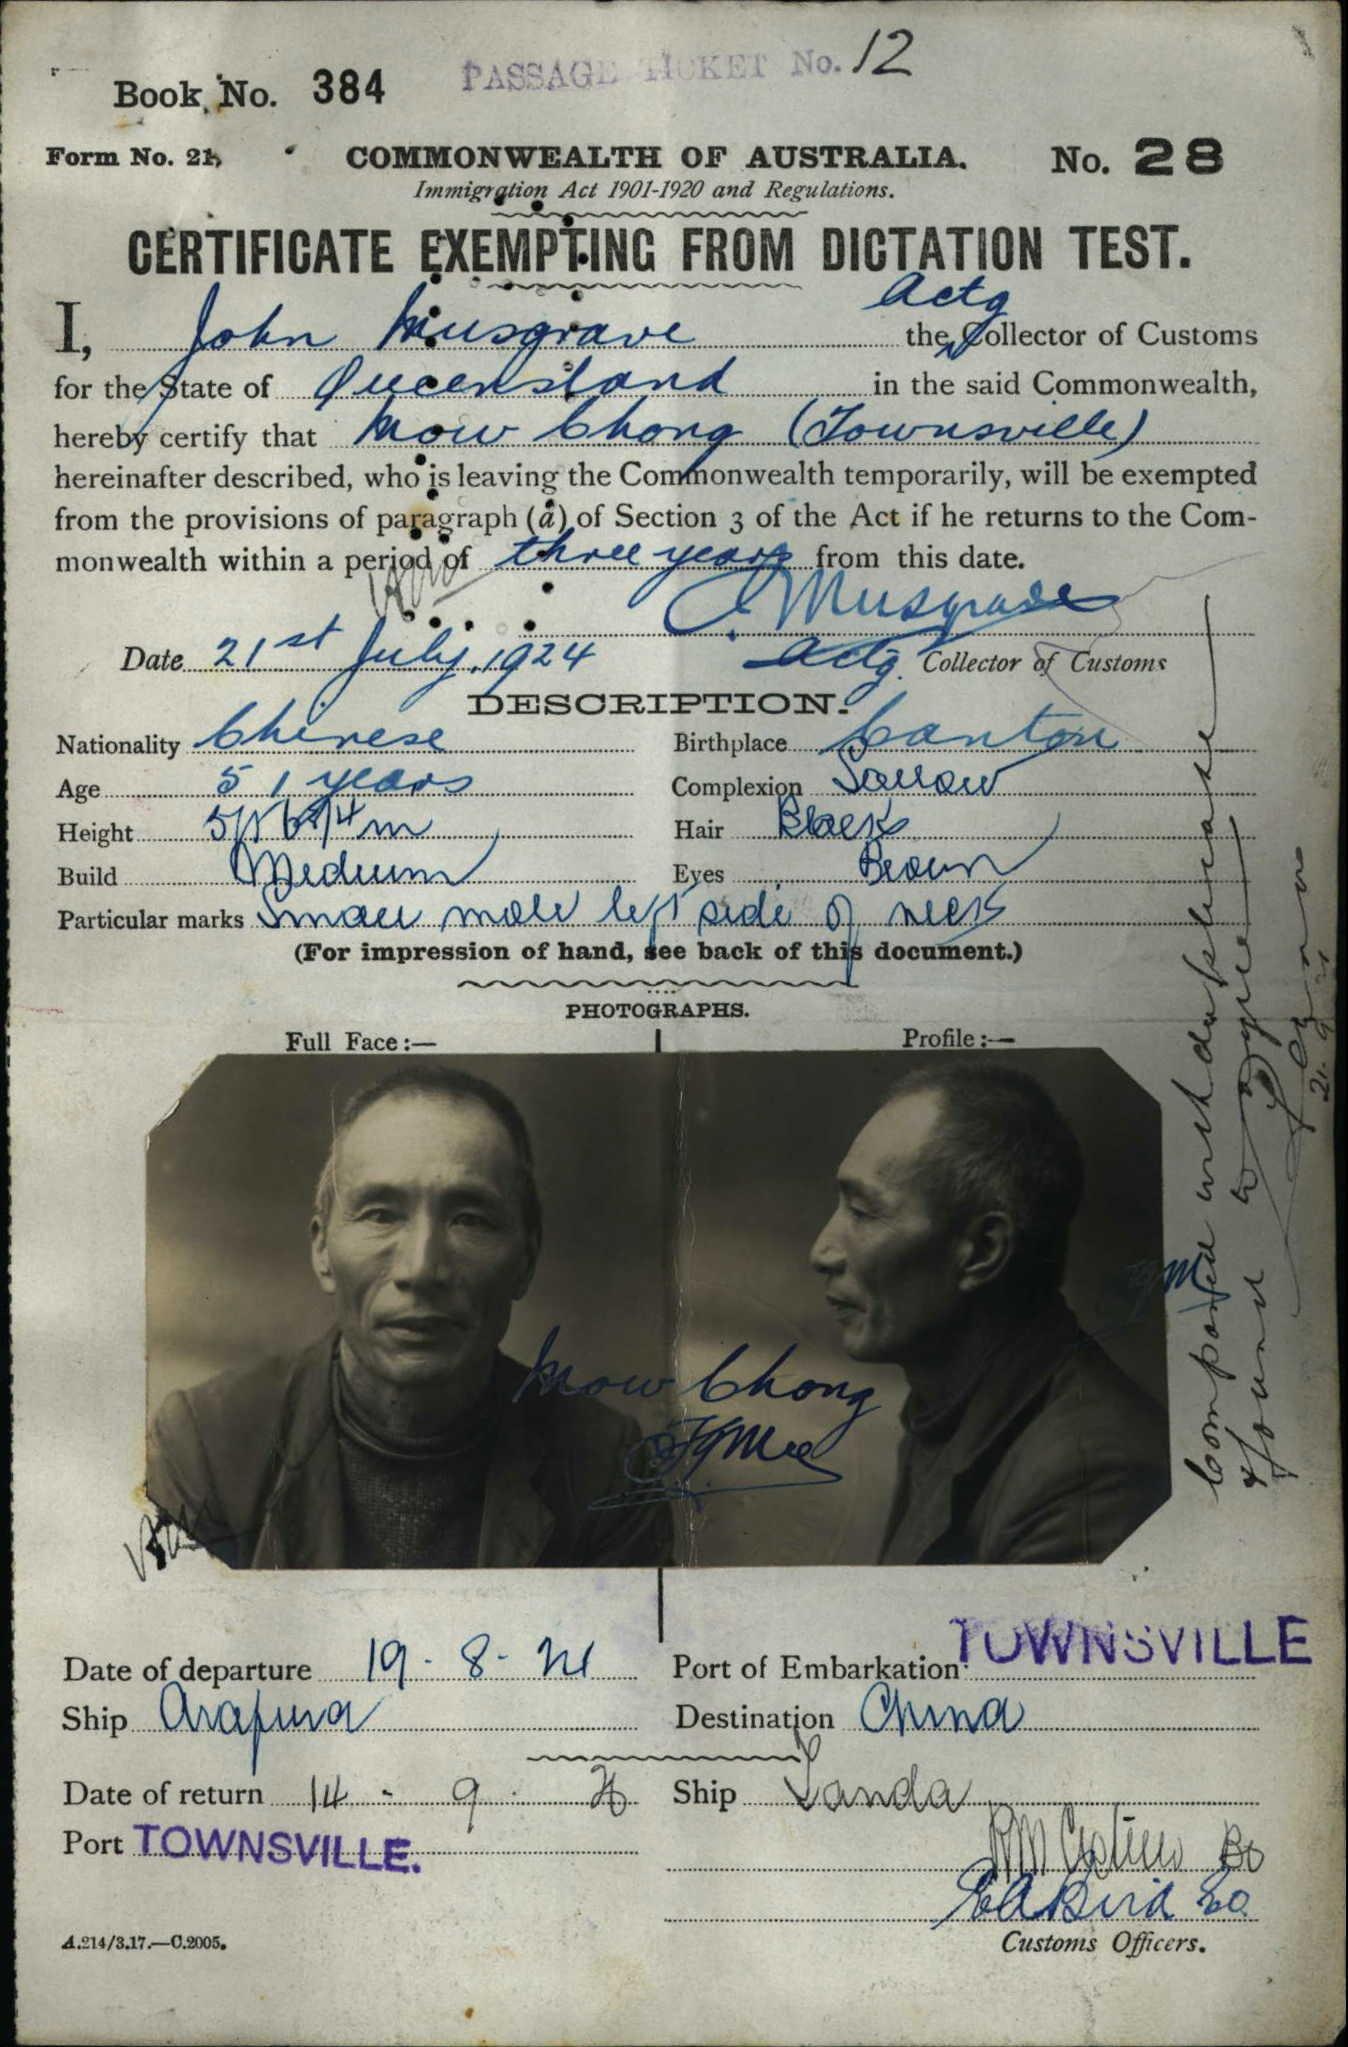 PASSAGE TICKET No. 12
Book No. 384
Form No. 21. COMMONWEALTH OF AUSTRALIA. No. 28
Immigration Act 1901-1920 and Regulations.
CERTIFICATE EXEMPTING FROM DICTATION TEST.
Actg
I, John Musgrave the Collector of Customs
for the State of Queensland in the said Commonwealth,
hereby certify that Mow Chong (Townsville)
hereinafter described, who is leaving the Commonwealth temporarily, will be exempted
from the provisions of paragraph (a) of Section 3 of the Act if he returns to the Com-
monwealth within a period of three years from this date.
J. Musgrave
Date 21st July, 1924 Actg. Collector of Customs
DESCRIPTION.
Nationality Chinese Birthplace Canton
Age 51 years Complexion Sallow
Height 5ft 6¾ in Hair Black
Build Medium Eyes Brown
Particular marks Small mole left side of neck
(For impression of hand, see back of this document.)
PHOTOGRAPHS.
Full Face:— Profile:—
Mow Chong
Compared with duplicate
& found to agree
Date of departure 19-8-24 Port of Embarkation TOWNSVILLE
Ship Arafura Destination China
Date of return 14-9-26 Ship Tanda
Port TOWNSVILLE.
Customs Officers.
A.214/3.17.—C.2005.